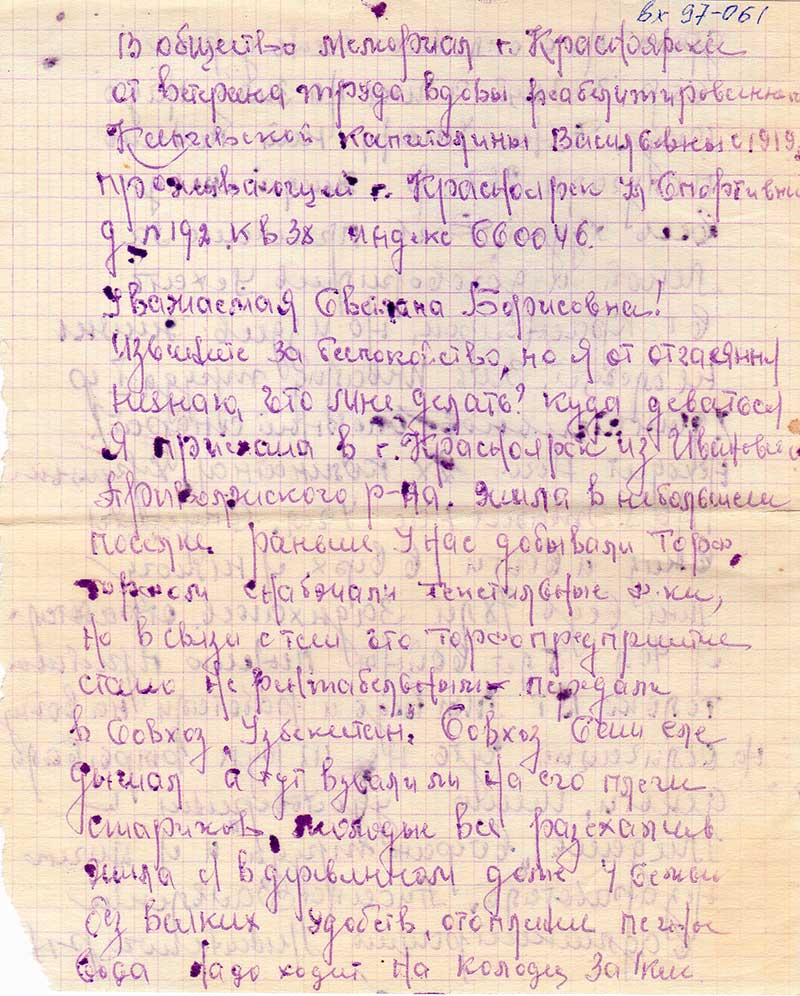 вх 97-061
В общество мемориал г. Красноярска
от ветерана труда вдовы реабелитированн
Капитолины Василевны с 1919
проживающей г. Красноярск ул Спортивн
д. п 192 кв 38 индекс 660046.
Уважаемая Светлана Борисовна!
Извените за беспокойство, но я от отчаяния
незнаю, что мне делать? куда деваться
Я приехала в г. Красноярск из
Приволжского р-на. жила в небольшом
поселке раньше у нас добывали торф,
торфом снабжали текстильные ф-ки,
но в связи с тем что торфопредприятие
стало не рентабельным передали
в Совхоз Узбекистан. Совхоз Сам еле
дышал а тут взвалили на его плечи
стариков, молодые все разехались
жила я в деревянном доме
без всяких удобств, отопление печное
вода надо ходит на колодец за 1км.